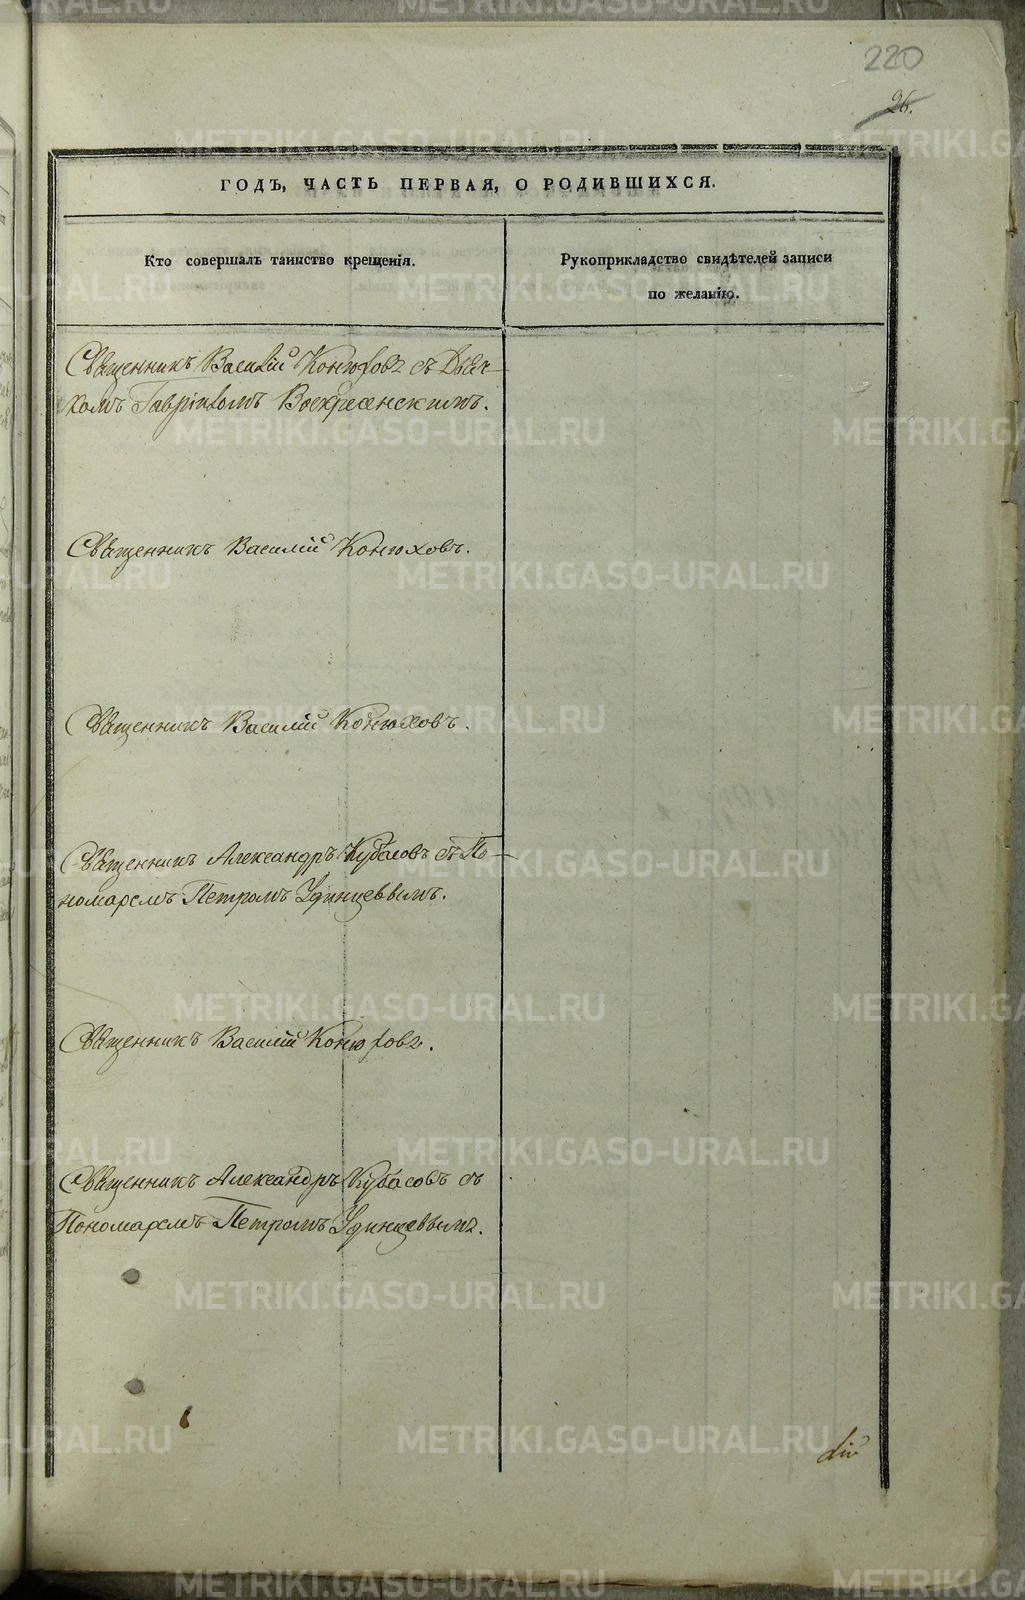 220
26.
ГОДЪ, ЧАСТЬ ПЕРВАЯ, О РОДИВШИХСЯ.
Кто совершалъ таинство крещенія.
Рукоприкладство свидѣтелей записи
по желанію.
Священникъ Василій Конюховъ съ Дьяч-
комъ Гавріиломъ Воскресенскимъ.
Священникъ Василій Конюховъ.
Священникъ Василій Конюховъ.
Священникъ Александръ Кубасовъ съ По-
номаремъ Петромъ Удинцевымъ.
Священникъ Василій Конюховъ.
Священникъ Александръ Кубасовъ съ
Пономаремъ Петромъ Удинцевымъ.
METRIKI.GASO-URAL.RU